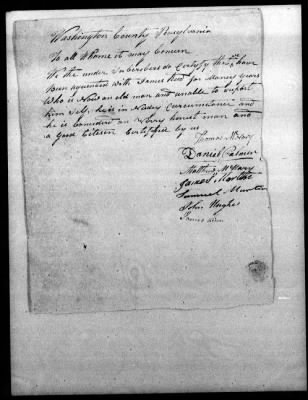 Washington County Pensylvania
To all Whome it may Concern
We the under Subscribers do Certify that we have
Been aquented with James for Maney years
Who is Now an old man and unable to suport
him Self, he is in Nedey Circumstances and
he is Considred an Very honest man and
a Good Citizen Certifyed by us
Thomas
Daniel
Matthew
James
Samuel
John Hughes
James